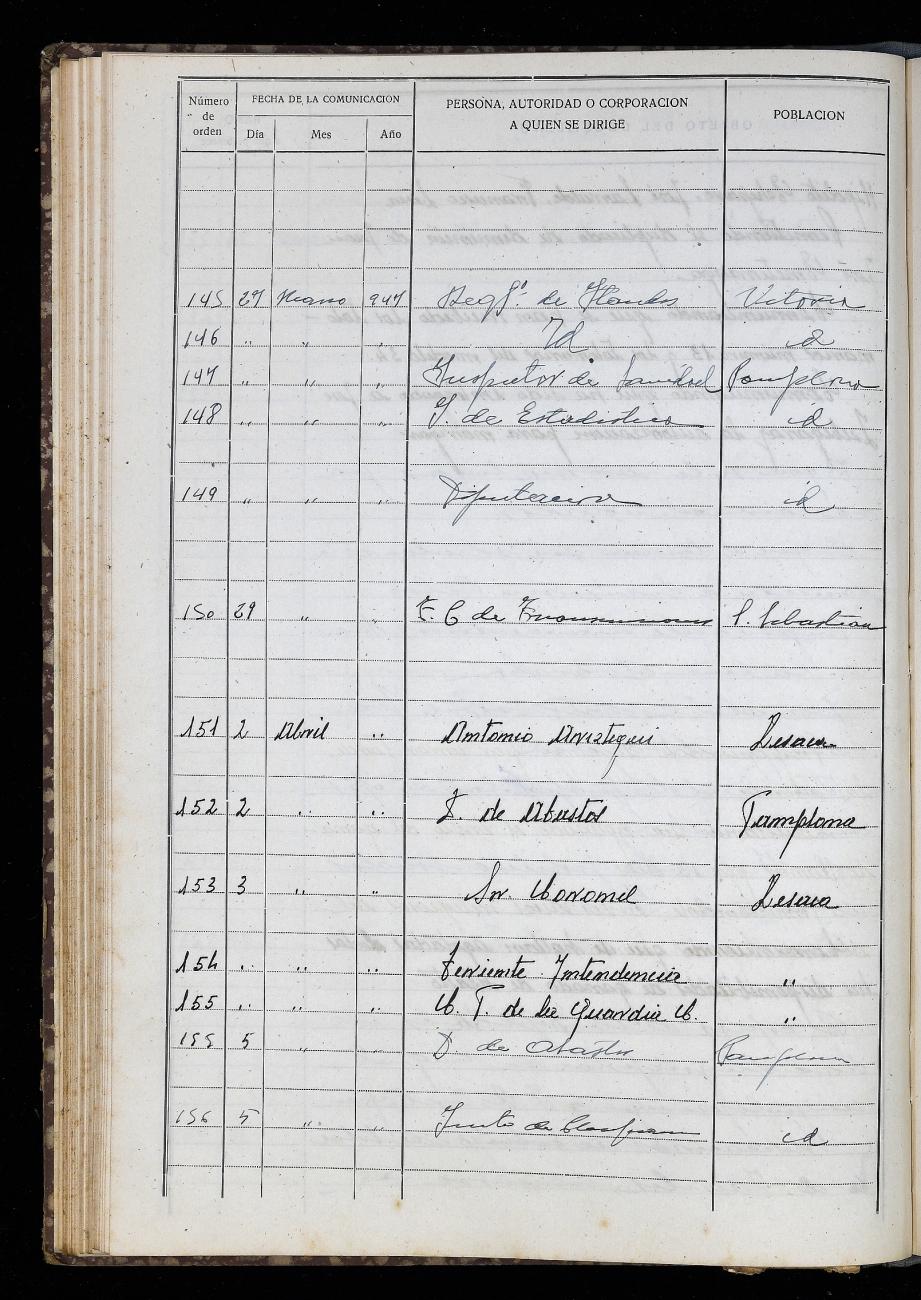 Número de orden FECHA DE LA COMUNICACION PERSONA, AUTORIDAD O CORPORACION A QUIEN SE DIRIGE POBLACION
Día Mes Año
145 27 947 de Vitoria
146 " " " Id id
147 " " " Inspector de Pamplona
148 " " " J. de Estadistica id
149 " " " Diputacion id
150 29 " " de S. Sebastian
151 2 Abril " Antonio Aristegui Lesaca
152 2 " " de Abastos Pamplona
153 3 " " Sr. Coronel Lesaca
154 " " " Teniente Intendencia "
155 " " " C. P. de la Guardia C. "
155 5 " " D de Abastos Pamplona
156 5 " " Junta de id